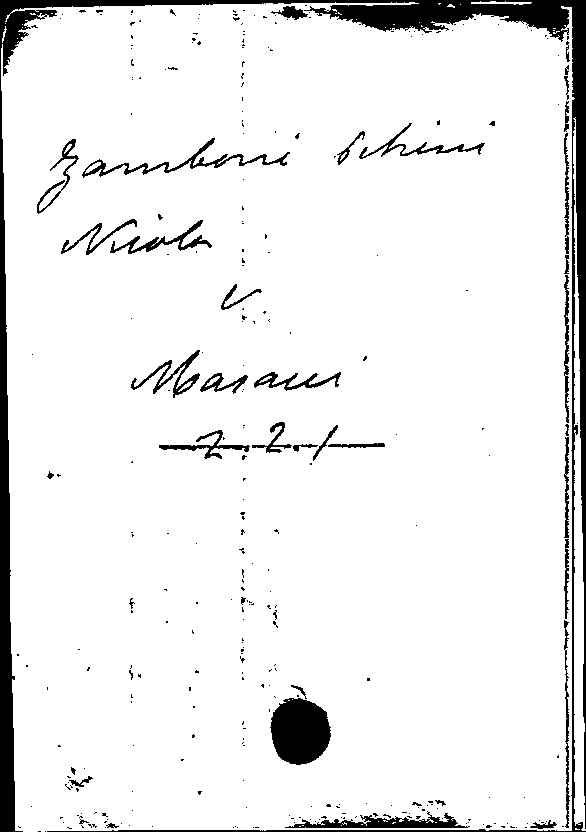 Zamboni Schini
Nicola
v
Masacci
Z.2.1